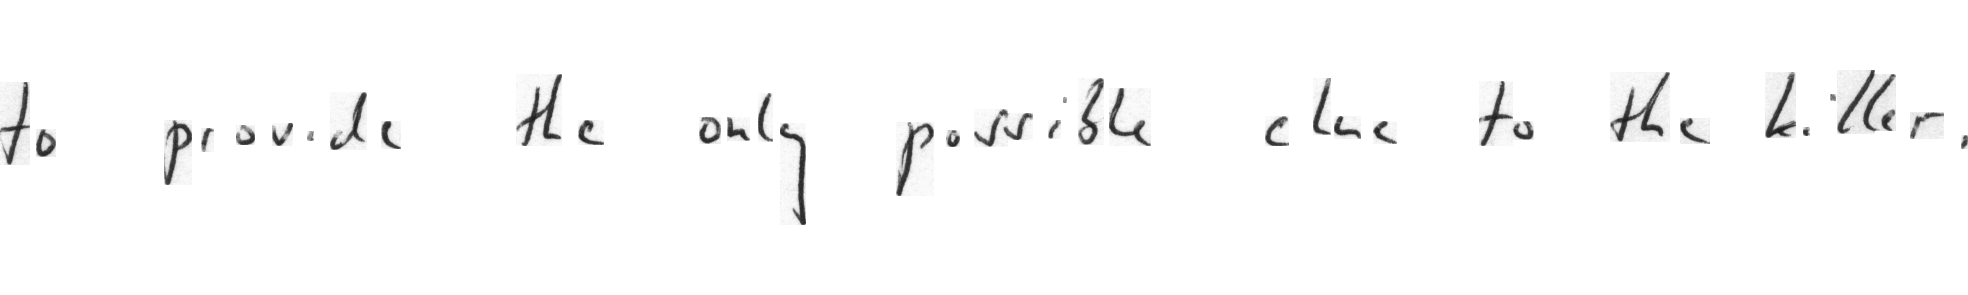 to provide the only possible clue to the killer,